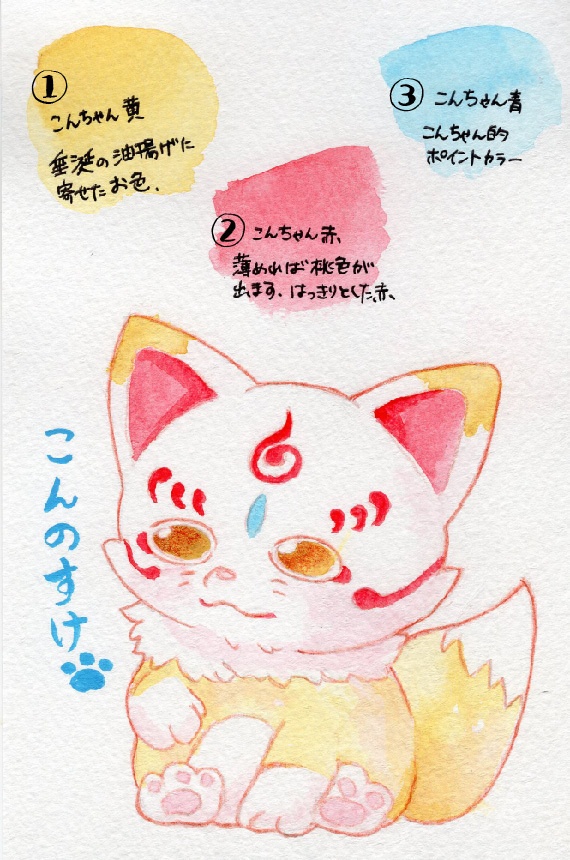 ①
こんちゃん黄
垂涎の油揚げに
寄せたお色.
②
こんちゃん赤、
薄めれば桃色が
出ます. はっきりとした赤、
③
こんちゃん青
こんちゃん的
ポイントカラー
こんのすけ